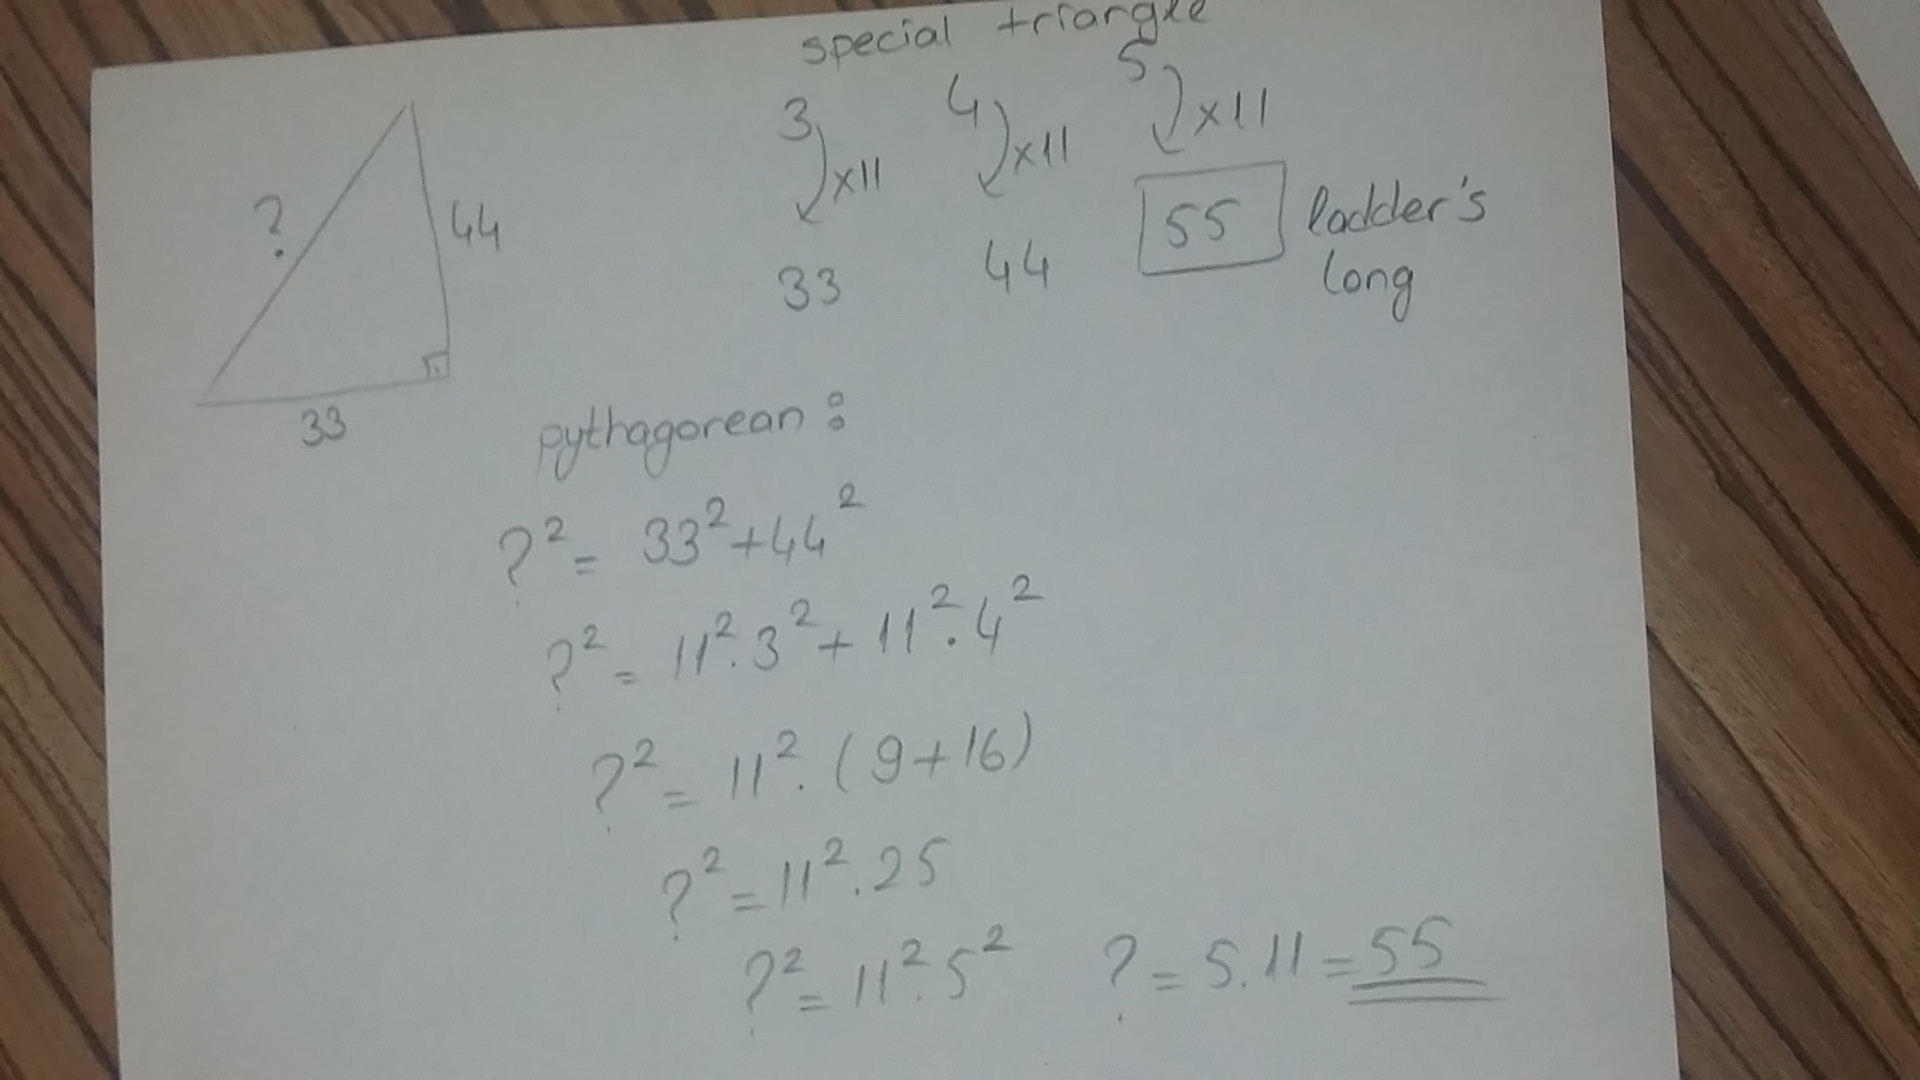 special triangle
3 4 5
x11 x11 x11
33 44 55 ladder's
long
?
44
33
pythagorean :
?² = 33² + 44²
?² = 11² . 3² + 11² . 4²
?² = 11² . (9 + 16)
?² = 11² . 25
?² = 11² . 5² ? = 5 . 11 = 55